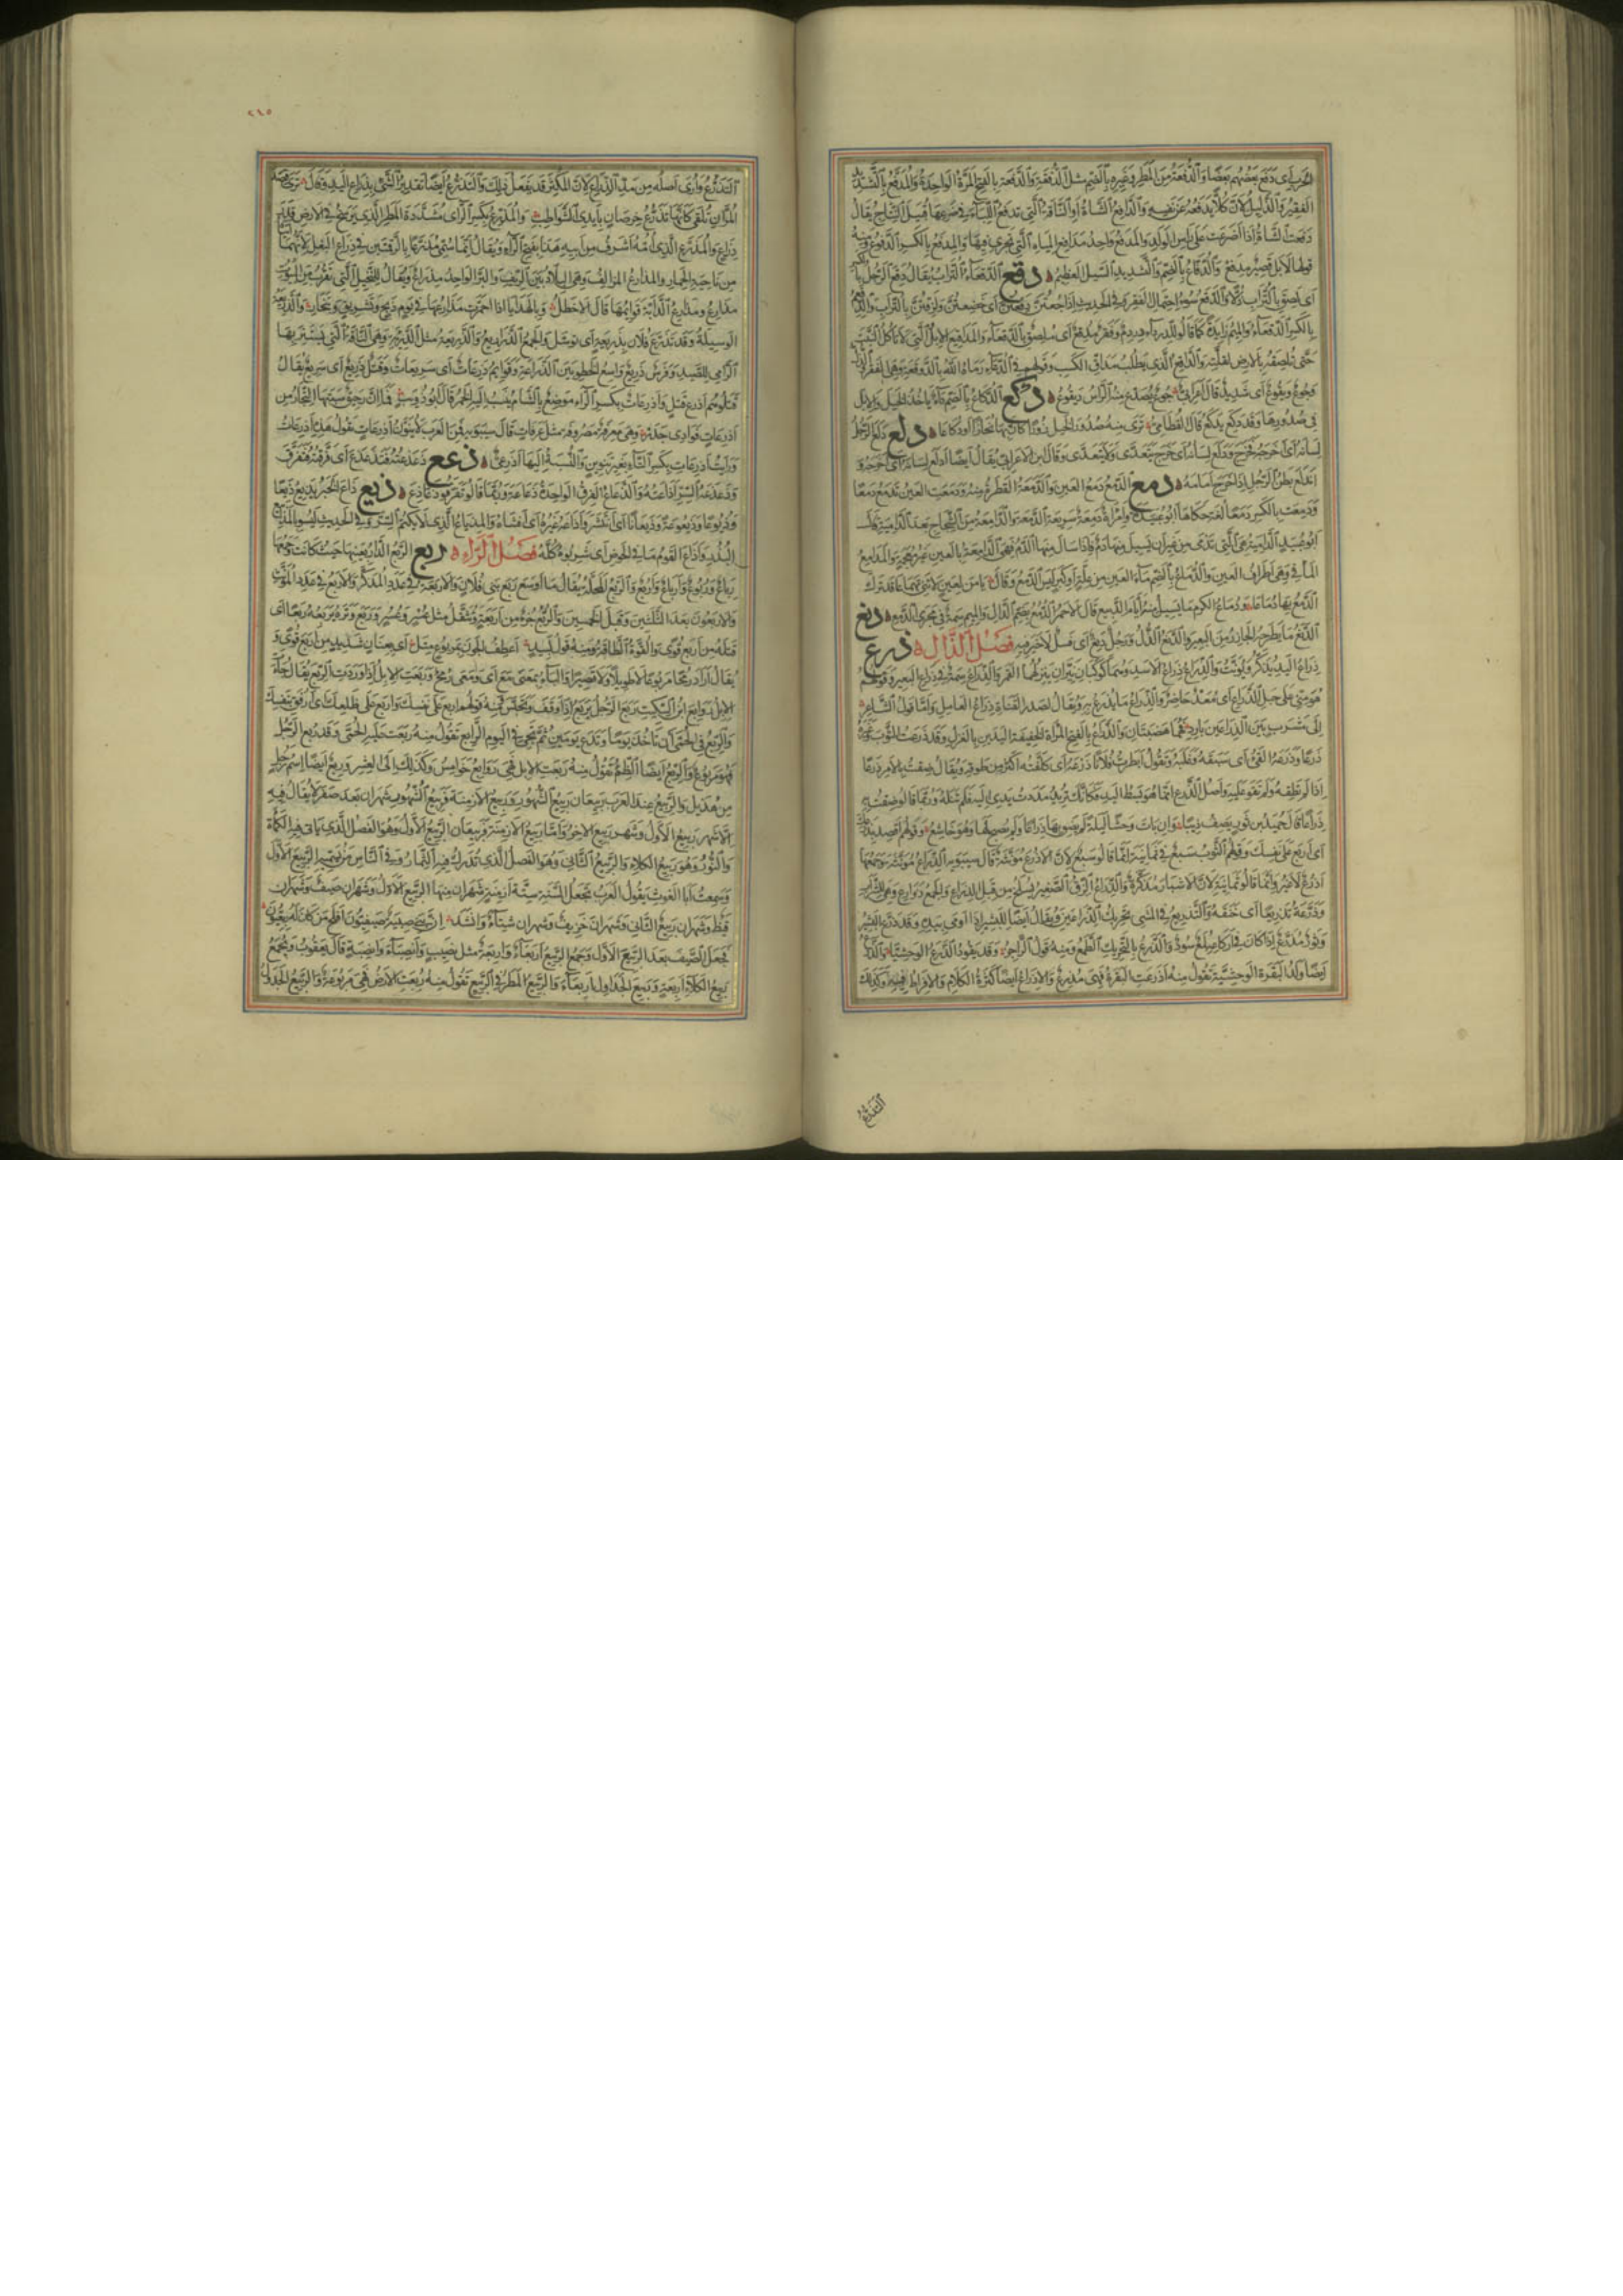 الحرب اى دفع بعضهم بعضا والدفعة من المطر وغيره بالضم مثل الدفقة والدفعة بالفتح المرة الواحدة والمدفع بالتشديد
الفقير والذليل لان كلا يدفعه عن نفسه والدافع الشاة او الناقة التى تدفع اللبأ فى ضرعها قبيل النتاج يقال
دفعت الشاة اذا اضرعت على راس الولد والمدفع واحد مدافع المياه التى تجرى فيها والمدفع بالكسر الدفوع ومنه
والدفاع بالضم والتشديد السيل العظيم دقع الدقعاء التراب يقال دقع الرجل بالكسر
اى لصق بالتراب ذلا والدقع سوء احتمال الفقر وفى الحديث اذا جعتن دقعتن اى خضعتن ولزقتن بالتراب والدقعم
بالكسر الدقعاء والميم زايدة كما قالوا للدرداء دردم وفقر مدقع اى ملصق بالدقعاء والمداقيع الابل التى تاكل النبت
حتى تلصقه بالارض لقلته والداقع الذى يطلب مداق الكسب وقولهم فى الدعاء رماه الله بالدوقعة وهى الفقر والذل
وجوع ديقوع اى شديد قال اعرابى جوع يصدع منه الراس ديقوع دكع الدكاع بالضم داء ياخذ الخيل والابل
فى صدورها وقد دكع يدكع قال القطامى ترى منه صدور الخيل زورا كان بها نحازا او دكاعا دلع دلع الرجل
لسانه اى اخرجه فخرج ودلع لسانه اى خرج يتعدى ولا يتعدى وقال ابن الاعرابى يقال ايضا ادلع لسانه اى اخرجه و
اندلع بطن الرجل اذا خرج امامه دمع الدمع دمع العين والدمعة القطرة منه ودمعت العين تدمع دمعا
ودمعت بالكسر دمعا لغة حكاها ابو عبيدة وامراة دمعة سريعة الدمعة والدامعة من الشجاج بعد الدامية قال
ابو عبيد الدامية هى التى تدمى من غير ان يسيل منها دم فاذا سال منها الدم فهى الدامعة بالعين غير معجمة والمدامع
المآقى وهى اطراف العين والدماع بالضم ماء العين من علة او كبر ليس الدمع وقال يا من لعين لا تنى تهماعا قد ترك
الدمع بها دماعا ودماع الكرم ما يسيل منه ايام الربيع قال الاحمر الدمع بضم الدال والميم سمة فى مجرى الدمع دنع
الدنع ما يطرحه الجازر من البعير والدنع الذل ورجل دنع اى فسل لا خير فيه فصل الذال ذرع
ذراع اليد يذكر ويؤنث والذراع ذراع الاسد وهما كوكبان نيران ينزلهما القمر والذراع سمة فى ذراع البعير وقولهم
هو منى على حبل الذراع اى معد حاضر والذراع ما يذرع به ويقال لصدر القناة ذراع العامل واما قول الشاعر
الى مشرب بين الذراعين بارد فهما هضبتان والذراع بالفتح المراة الخفيفة اليدين بالغزل وقد ذرعت الثوب وغيره
ذرعا وذرعه القئ اى سبقه وغلبه وتقول ابطرت فلانا ذرعه اى كلفته اكثر من طوقه ويقال ضقت بالامر ذرعا
اذا لم تطقه ولم تقو عليه واصل الذرع انما هو بسط اليد فكانك تريد مددت يدى اليه فلم تنله وربما قالوا ضقت به
ذراعا قال حميد بن ثور يصف ذيبا وان بات وحشا ليلة لم يضق بها ذراعا ولم يصبح لها وهو خاشع وقولهم اقصد بذرعك
اى اربع على نفسك وقولهم الثوب سبع فى ثمانية انما قالوا سبع لان الاذرع مؤنثة قال سيبويه الذراع مؤنثة وجمعها
اذرع لا غير وانما قالوا ثمانية لان الاشبار مذكرة والذراع الزق الصغير يسلخ من قبل الذراع والجمع ذوارع وهى للشراب
وذرعه تذريعا اى خنقه والتذريع فى المشى تحريك الذراعين ويقال ايضا للبشير اذا اومى بيده قد ذرع البشير
وثور مذرع اذا كان فى اكارعه لمع سود والذرع بالتحريك الطمع ومنه قول الراجز وقد يقود الذرع الوحشيا والذرع
ايضا ولد البقرة الوحشية تقول منه اذرعت البقرة فهى مذرع والاذراع ايضا كثرة الكلام والافراط فيه وكذلك
التذرع
٢١٥
التذرع وارى اصله من مد الذراع لان المكثر قد يفعل ذلك والتذرع ايضا تقدير الشئ بذراع اليد وقال ترى قصد
المران تلقى كانها تذرع خرصان بايدى الشواطب والمذرع بكسر الراء مشددة المطر الذى يرسخ فى الارض قدر
ذراع والمذرع الذى امه اشرف من ابيه هذا بفتح الراء ويقال انما سمى مذرعا بالرقمتين فى ذراع البغل لانهما اتتاه
من ناحية الحمار والمذارع المزالف وهى البلاد بين الريف والبر الواحد مذراع ويقال للنخيل التى تقرب من البيوت
مذارع ومذارع الدابة قوايمها قال الاخطل وبالهدايا اذا احمرت مذارعها فى يوم ذبح وتشريق وتنحار والذريعة
الوسيلة وقد تذرع فلان بذريعة اى توسل والجمع الذرايع والذريعة مثل الدريئة وهى الناقة التى يستتر بها
الرامى للصيد وفرس ذريع واسع الخطو بين الذراعة وقوايم ذرعات اى سريعات وقتل ذريع اى سريع يقال
قتلوهم اذرع قتل واذرعات بكسر الراء موضع بالشام ينسب اليه الخمر قال ابو ذؤيب فما ان رحيق سبتها التجار من
اذرعات فوادى جدر وهى معرفة مصروفة مثل عرفات قال سيبويه فمن العرب لا ينون اذرعات يقول هذه اذرعات
ورايت اذرعات بكسر التاء بغير تنوين والنسبة اليها اذرعى ذعع ذعذعته فتذعذع اى فرقته فتفرق
وذعذعة السر اذاعته والذعاع الفرق الواحدة ذعاعة وربما قالوا تفرقوا ذعاذع ذيع ذاع الخبر يذيع ذيعا
وذيوعا وذيعوعة وذيعانا اى انتشر واذاعه غيره اى افشاه والمذياع الذى لا يكتم السر وفى الحديث ليسوا بالمذاييع
البذر واذاع القوم ما فى الحوض اى شربوه كله فصل الراء ربع الربع الدار بعينها حيث كانت وجمعها
رباع وربوع وارباع واربع والربع المحلة يقال ما اوسع ربع بنى فلان والاربعة فى عدد المذكر والاربع فى عدد المؤنث
والاربعون بعد الثلثين وقبل الخمسين والربع جزء من اربعة ويثقل مثل عسر وعسر وربع وتره يربعه ربعا اى
فتله من اربع قوى والقوة الطاقة ومنه قول لبيد اعطف الجون بمربوع متل اى بعنان شديد من اربع قوى و
يقال اراد رمحا مربوعا لا طويلا ولا قصيرا والباء بمعنى مع اى ومعى رمح وربعت الابل اذا وردت الربع يقال جاءت
الابل روابع ابن السكيت ربع الرجل يربع اذا وقف وتحبس ومنه قولهم اربع على نفسك واربع على ظلعك اى ارفق بنفسك
والربع فى الحمى ان تاخذ يوما وتدع يومين ثم تجئ فى اليوم الرابع تقول منه ربعت عليه الحمى وقد ربع الرجل
فهو مربوع والربع ايضا الظمء تقول منه ربعت الابل فهى روابع خوامس وكذلك الى العشر وربع ايضا اسم رجل
من هذيل والربيع عند العرب ربيعان ربيع الشهور وربيع الازمنة فربيع الشهور شهران بعد صفر لا يقال فيه
الا شهر ربيع الاول وشهر ربيع الاخر واما ربيع الازمنة فربيعان الربيع الاول وهو الفصل الذى ياتى فيه الكماة
والنور وهو ربيع الكلاء والربيع الثانى وهو الفصل الذى تدرك فيه الثمار وفى الناس من يسميه الربيع الاول
وسمعت ابا الغوث يقول العرب تجعل السنة ستة ازمنة شهران منها الربيع الاول وشهران صيف وشهران
قيظ وشهران ربيع الثانى وشهران خريف وشهران شتاء وانشد ان بنى صبية صيفيون افلح من كان له ربعيون
فجعل الصيف بعد الربيع الاول وجمع الربيع اربعاء واربعة مثل نصيب وانصباء وانصبة قال يعقوب ويجمع
ربيع الكلاء اربعة وربيع الجداول اربعاء والربيع المطر فى الربيع تقول منه ربعت الارض فهى مربوعة والربيع الجدول